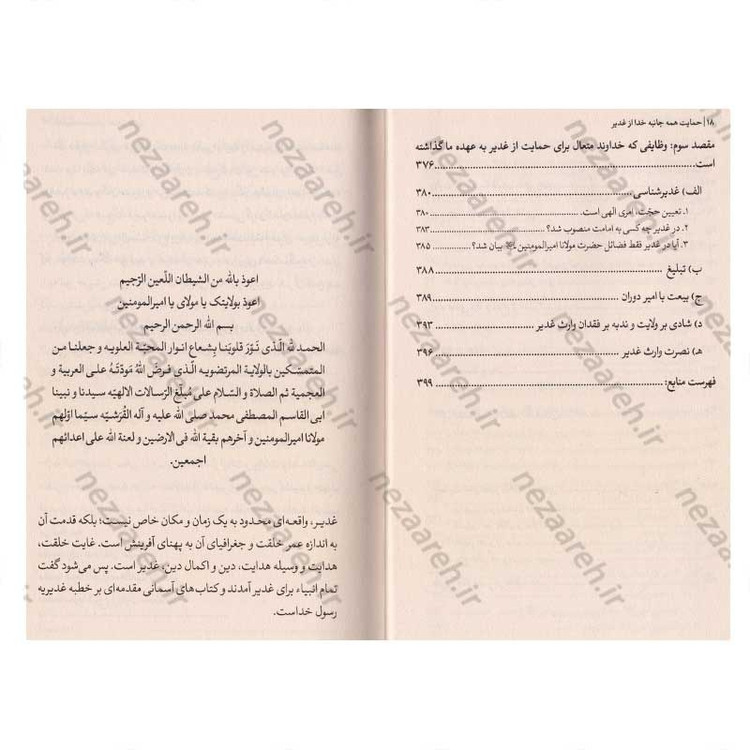 ۱۸ | حمایت همه جانبه خدا از غدیر
مقصد سوم: وظایفی که خداوند متعال برای حمایت از غدیر به عهده ما گذاشته
است ........ ۳۷۶
الف) غدیرشناسی ........ ۳۸۰
۱. تعیین حجّت، امری الهی است. ........ ۳۸۰
۲. در غدیر چه کسی به امامت منصوب شد؟ ........ ۳۸۳
۳. آیا در غدیر فقط فضائل حضرت مولانا امیرالمومنین بیان شد؟ ........ ۳۸۵
ب) تبلیغ ........ ۳۸۸
ج) بیعت با امیر دوران ........ ۳۸۹
د) شادی بر ولایت و ندبه بر فقدان وارث غدیر ........ ۳۹۳
هـ) نصرت وارث غدیر ........ ۳۹۶
فهرست منابع: ........ ۳۹۹
اعوذ بالله من الشیطان اللّعین الرّجیم
اعوذ بولایتک یا مولای یا امیرالمومنین
بسم الله الرحمن الرحیم
الحمد لله الّذی نَوَّرَ قلوبَنا بِشعاع انوار المحبّة العلویه و جعلنا من
المتمسّکین بالولایة المرتضویه الّذی فرضَ اللهُ مَودّتَهُ علی العربیة و
العجمیة ثم الصلاة و السّلام علی مُبلّغ الرّسالات الالهیّه سیدنا و نبینا
ابی القاسم المصطفی محمد صلی الله علیه و آله القُرَشیّه سیّما اوّلهم
مولانا امیرالمومنین و آخرهم بقیة الله فی الارضین و لعنة الله علی اعدائهم
اجمعین.
غدیر، واقعه‌ای محدود به یک زمان و مکان خاص نیست؛ بلکه قدمت آن
به اندازه عمر خلقت و جغرافیای آن به پهنای آفرینش است. غایت خلقت،
هدایت و وسیله هدایت، دین و اکمال دین، غدیر است. پس می‌شود گفت
تمام انبیاء برای غدیر آمدند و کتاب‌های آسمانی مقدمه‌ای بر خطبه غدیریه
رسول خداست.
nezaareh.ir